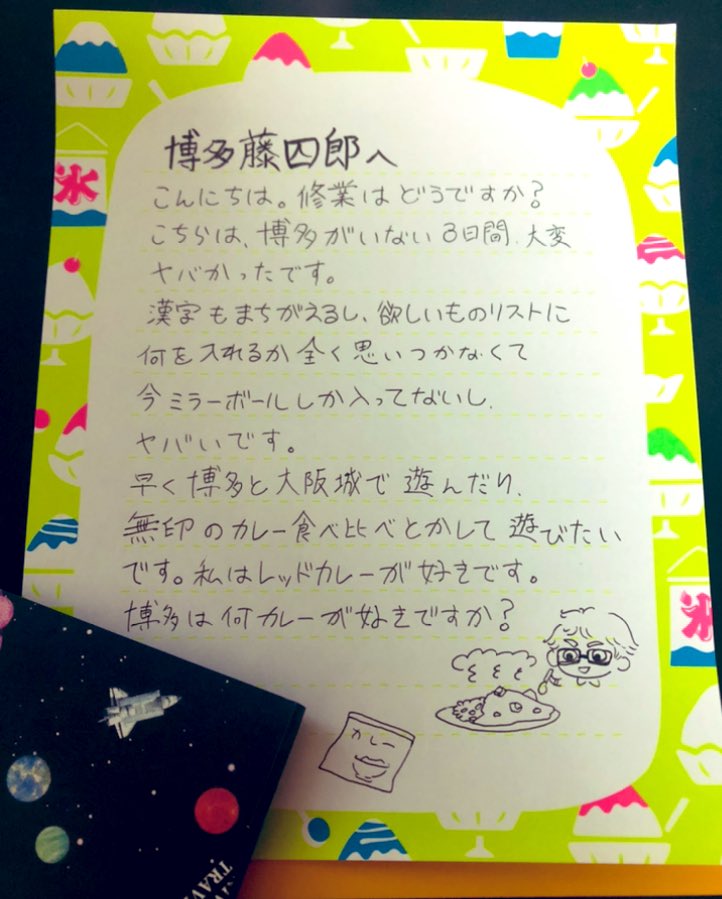 博多藤四郎へ
こんにちは。修業はどうですか?
こちらは、博多がいない3日間、大変
ヤバかったです。
漢字もまちがえるし、欲しいものリストに
何を入れるか全く思いつかなくて
今ミラーボールしか入ってないし、
ヤバいです。
早く博多と大阪城で遊んだり、
無印のカレー食べ比べとかして遊びたい
です。私はレッドカレーが好きです。
博多は何カレーが好きですか?
カレー
氷
氷